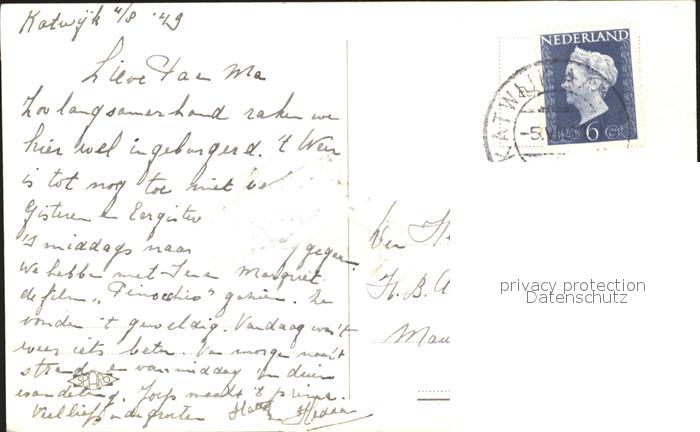 Katwijk 4/8 '49
Lieve Pa en Ma
Zoo langzamerhand raken we
hier wel ingeburgerd. 't Weer
is tot nog toe niet
Gisteren en Eergister
's middags naar
We hebben met en Margriet
de film „Pinocchio" gezien. Ze
vonden 't geweldig. Vandaag was 't
weer iets beter. Van morgen naar 't
strand en van middag een duin
wandeling. Joep maakt 't prima.
Veel liefs en de groeten
NEDERLAND
6 Ct
KATWIJK
-5.
Den
H. B.
privacy protection
Datenschutz
SPARO